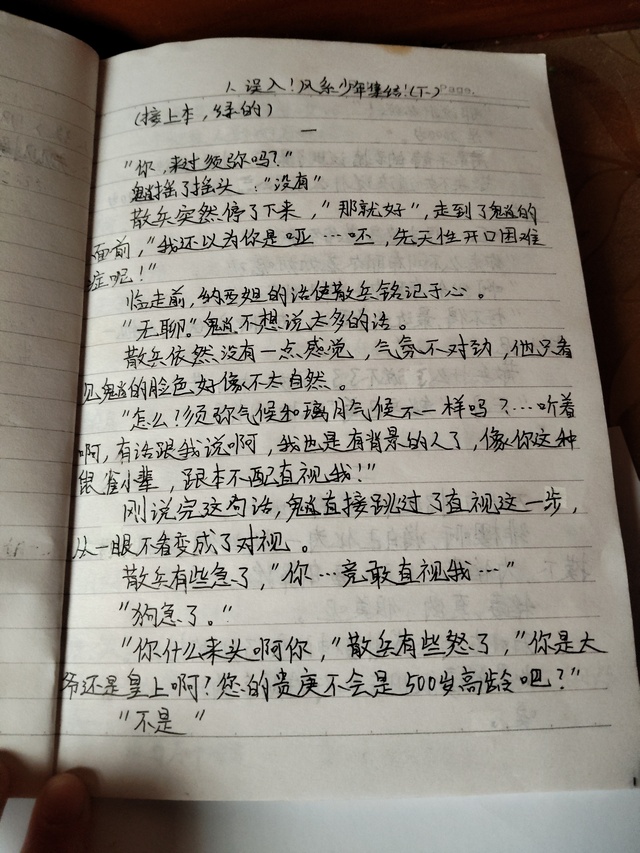 1. 误入！风系少年集结！(下) Page.
(接上本，绿的)
一
“你，来过须弥吗？”
魈摇了摇头：“没有”
散兵突然停了下来，“那就好”，走到了魈的
面前，“我还以为你是哑…呸，先天性开口困难
症呢！”
临走前，纳西妲的话使散兵铭记于心。
“无聊。”魈不想说太多的话。
散兵依然没有一点感觉，气氛不对劲，他只看
见魈的脸色好像不太自然。
“怎么！须弥气候和璃月气候不一样吗？…听着
啊，有话跟我说啊，我也是有背景的人了，像你这种
鼠雀小辈，跟本不配直视我！”
刚说完这句话，魈直接跳过了直视这一步，
从一眼不看变成了对视。
散兵有些急了，“你…竟敢直视我…”
“狗急了。”
“你什么来头啊你，”散兵有些怒了，“你是大
爷还是皇上啊？您的贵庚不会是500岁高龄吧？”
“不是”